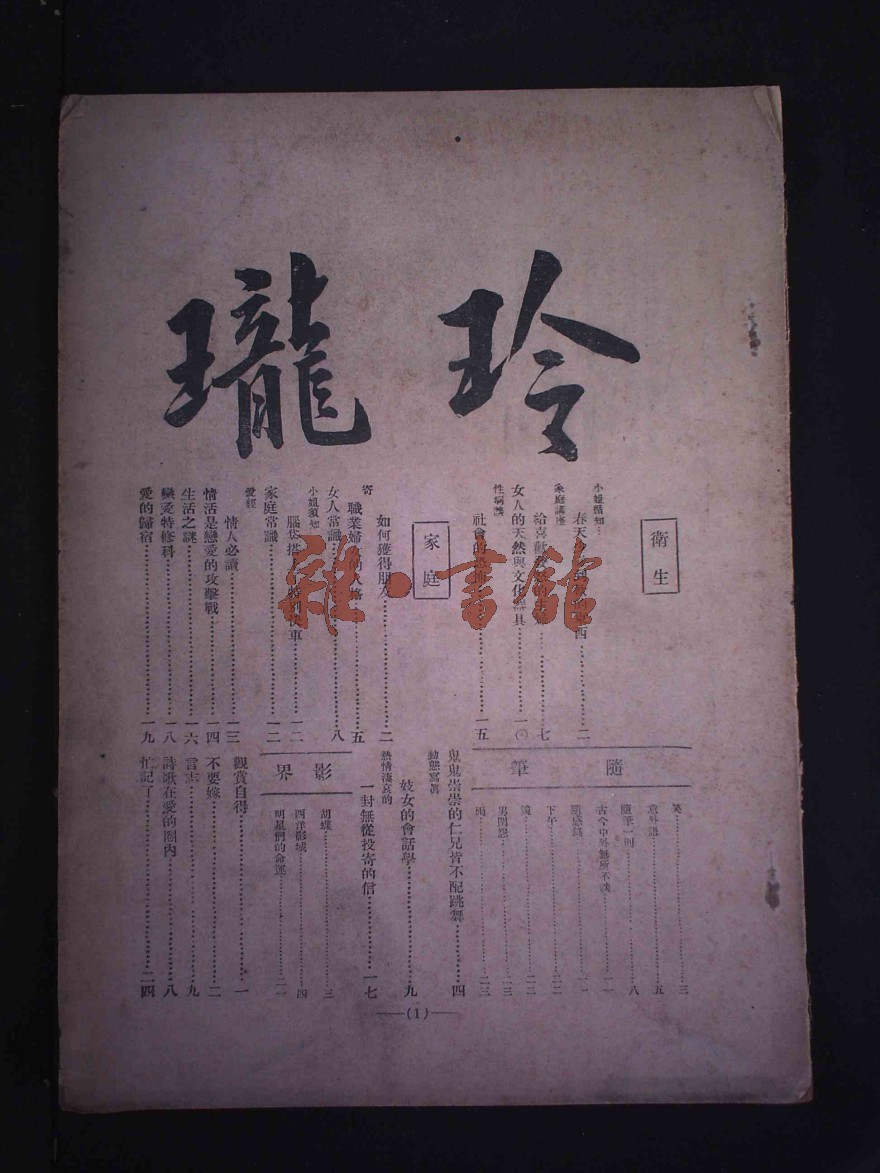 玲瓏
衛生
小姐須知…
春天
二
家庭講座
給喜歡
七
女人的天然與文化
具
一〇
性病談
社會的恐怖
一五
家庭
如何獲得朋友
二
寄
職業婦女的人格
五
女人常識
八
小姐須知
腦袋搭
特別快車
一二
家庭常識
一二
愛經
情人必讀
一三
情活是戀愛的攻擊戰
一四
生活之謎
一六
戀愛特修科
一八
愛的歸宿
一九
隨筆
笑
三
意外語
五
隨筆一則
八
古今中外無所不談
一一
隨感錄
一一
下午
二二
二二
男閨怨
二三
二三
鬼鬼崇崇的仁兄肯不配跳舞
四
動態寫眞
妓女的會話學
九
熱情淒哀的
一封無從投寄的信
一七
影界
胡蝶
三
西洋影城
四
明星們的命運
二一
觀賞自得
一
不要嫁
二
言志
九
詩歌在愛的圈內
八
忙記了
二四
—(1)—
雜·書館